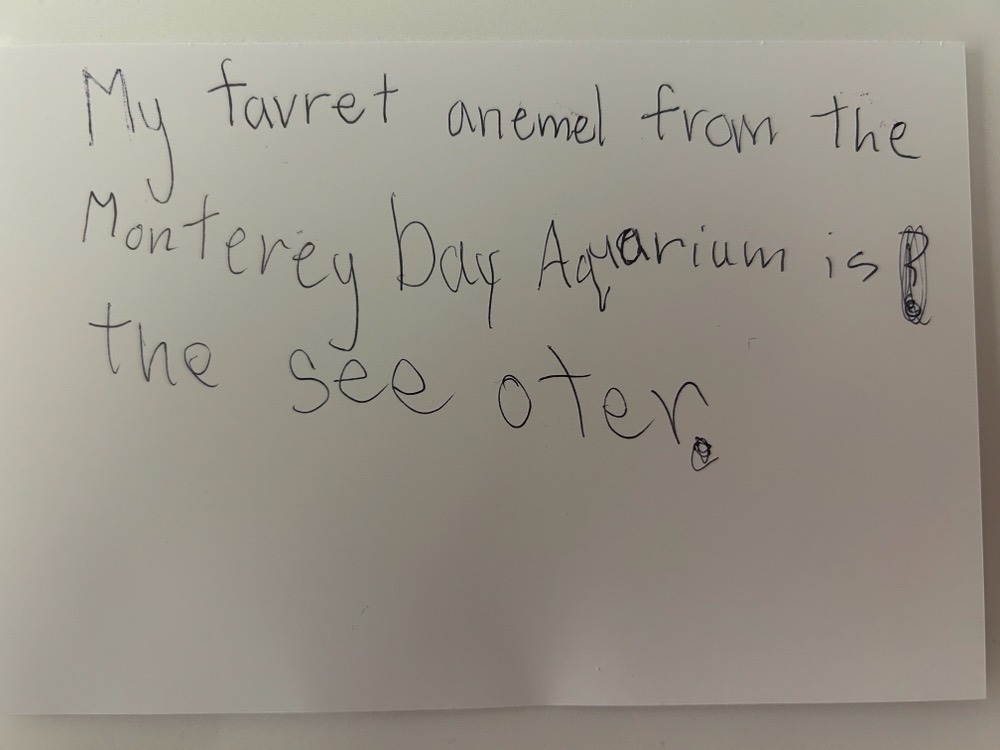 My favret anemel from the
Monterey bay Aquarium is
the see oter.